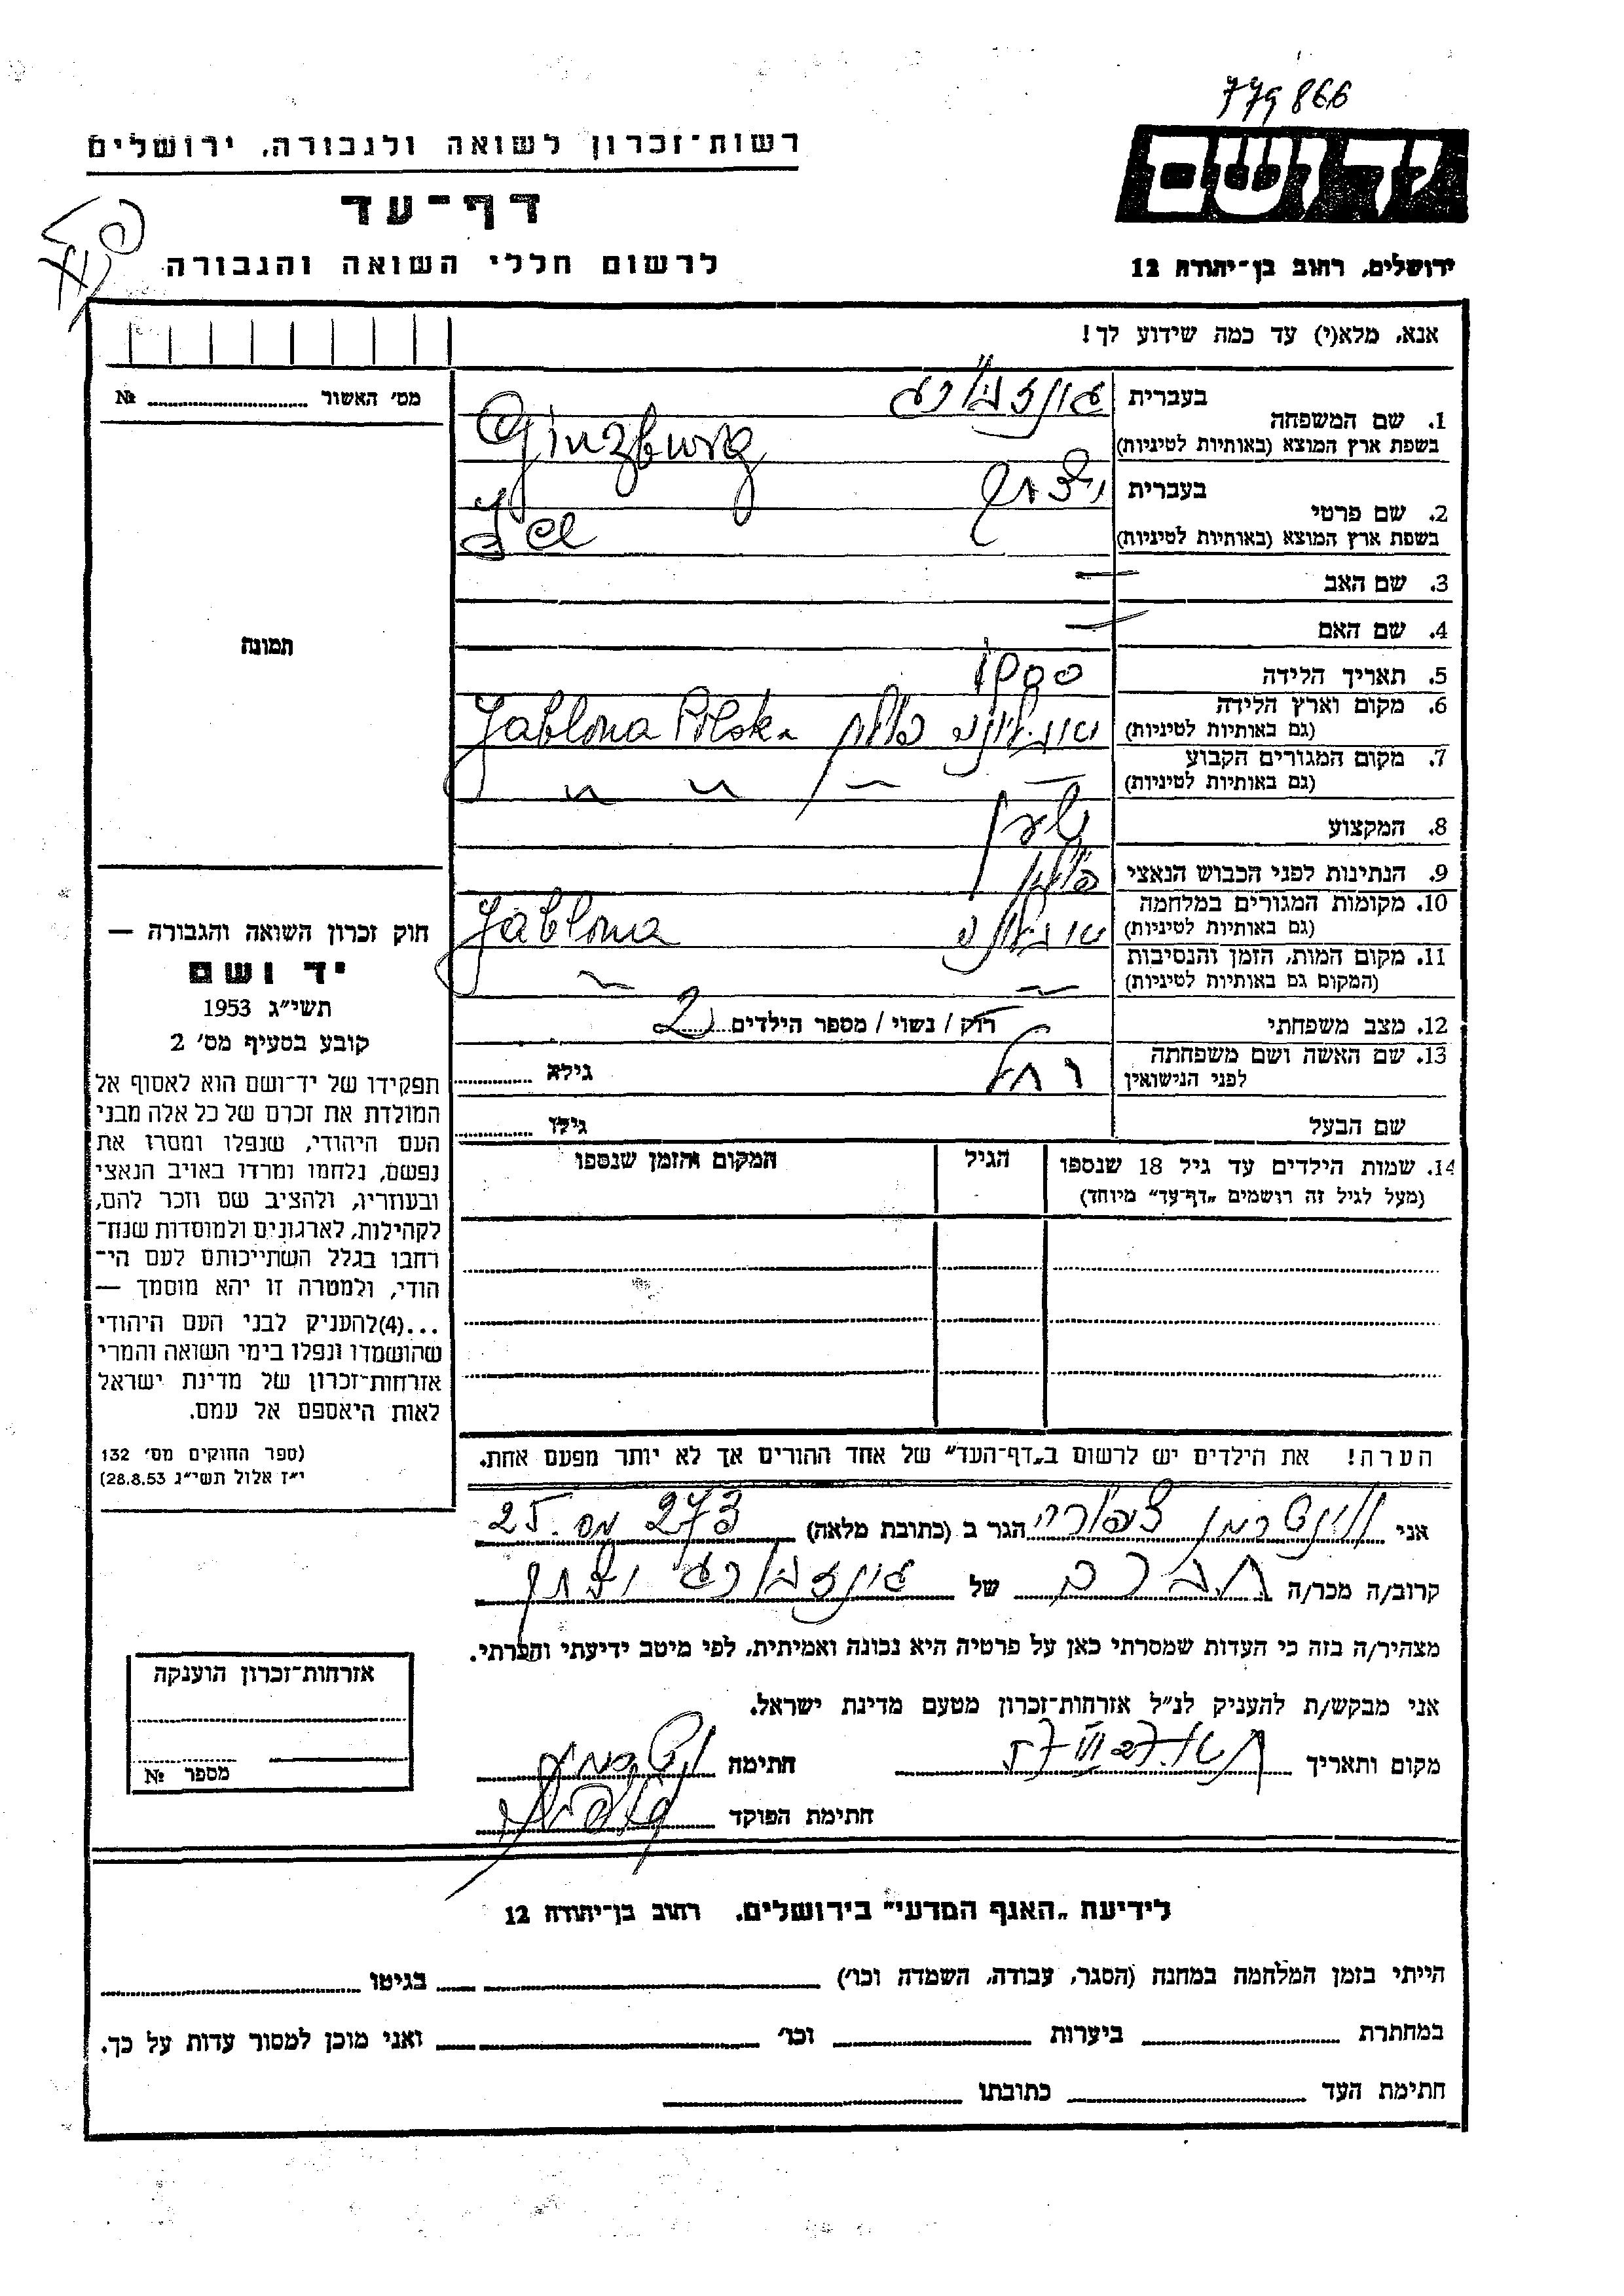 779866
רשות־זכרון לשואה ולגבורה, ירושלים
יד ושם
דף־עד
לרשום חללי השואה והגבורה
ירושלים, רחוב בן־יהודה 12
אנא, מלא(י) עד כמה שידוע לך!
מס׳ האשור № 
1. שם המשפחה
בעברית גינזבורג
בשפת ארץ המוצא (באותיות לטיניות) Ginzburg
2. שם פרטי
בעברית
בשפת ארץ המוצא (באותיות לטיניות)
3. שם האב —
4. שם האם —
5. תאריך הלידה 1900
6. מקום וארץ הלידה
(גם באותיות לטיניות) יבלונה פולין Jablona Polska
7. מקום המגורים הקבוע
(גם באותיות לטיניות)
8. המקצוע
9. הנתינות לפני הכבוש הנאצי
10. מקומות המגורים במלחמה
(גם באותיות לטיניות) יבלונה Jablona
11. מקום המות, הזמן והנסיבות
(המקום גם באותיות לטיניות)
12. מצב משפחתי רווק / נשוי / מספר הילדים 2
13. שם האשה ושם משפחתה
לפני הנישואין רחל גילה
שם הבעל גילו
14. שמות הילדים עד גיל 18 שנספו
(מעל לגיל זה רושמים „דף־עד״ מיוחד)
הגיל
המקום והזמן שנספו
תמונה
חוק זכרון השואה והגבורה —
יד ושם
תשי״ג 1953
קובע בסעיף מס׳ 2
תפקידו של יד־ושם הוא לאסוף אל
המולדת את זכרם של כל אלה מבני
העם היהודי, שנפלו ומסרו את
נפשם, נלחמו ומרדו באויב הנאצי
ובעוזריו, ולהציב שם וזכר להם,
לקהילות, לארגונים ולמוסדות שנח־
רחבו בגלל השתייכותם לעם הי־
הודי, ולמטרה זו יהא מוסמך —
...(4)להעניק לבני העם היהודי
שהושמדו ונפלו בימי השואה והמרי
אזרחות־זכרון של מדינת ישראל
לאות היאספם אל עמם.
(ספר החוקים מס׳ 132
י״ז אלול תשי״ג 28.8.53)
הערה! את הילדים יש לרשום ב„דף־העד״ של אחד ההורים אך לא יותר מפעם אחת.
אני צפורה הגר ב (כתובת מלאה) 273 מס. 25
קרוב/ה מכר/ה של גינזבורג
מצהיר/ה בזה כי העדות שמסרתי כאן על פרטיה היא נכונה ואמיתית, לפי מיטב ידיעתי והכרתי.
אני מבקש/ת להעניק לנ״ל אזרחות־זכרון מטעם מדינת ישראל.
מקום ותאריך חתימה
חתימת הפוקד
אזרחות־זכרון הוענקה
מספר №
לידיעת „האגף המדעי״ בירושלים, רחוב בן־יהודה 12
הייתי בזמן המלחמה במחנה (הסגר, עבודה, השמדה וכו׳) בגיטו
במחתרת ביערות וכו׳ ואני מוכן למסור עדות על כך.
חתימת העד כתובתו